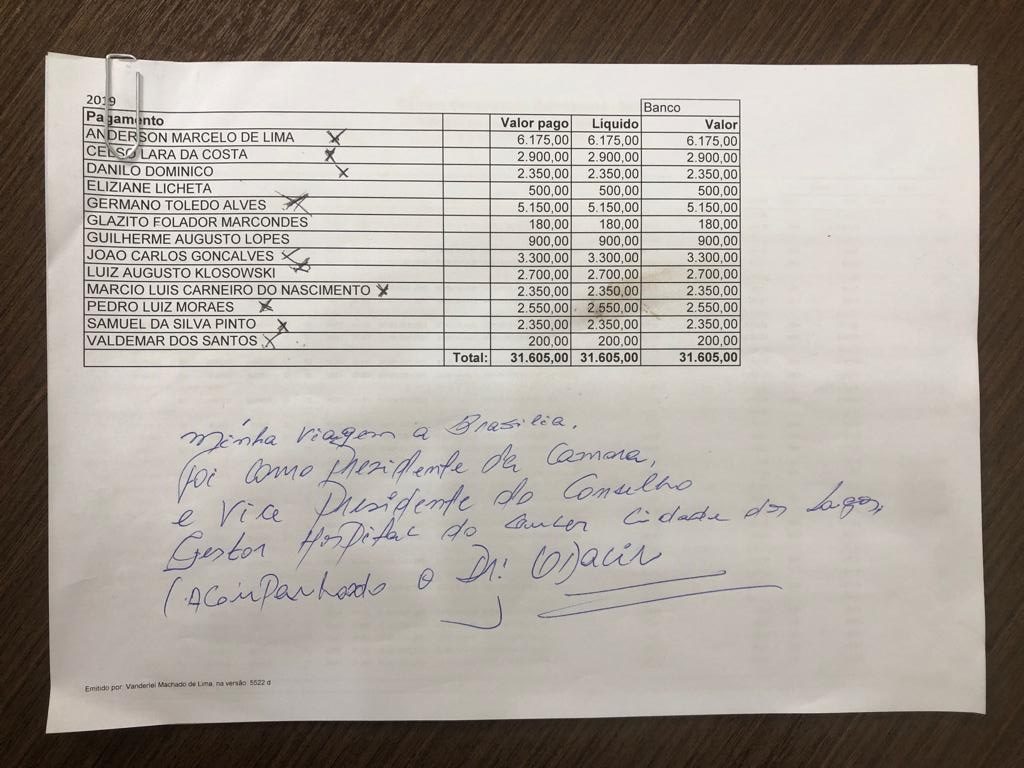 2019
Banco
Pagamento Valor pago Líquido Valor
ANDERSON MARCELO DE LIMA 6.175,00 6.175,00 6.175,00
CELSO LARA DA COSTA 2.900,00 2.900,00 2.900,00
DANILO DOMINICO 2.350,00 2.350,00 2.350,00
ELIZIANE LICHETA 500,00 500,00 500,00
GERMANO TOLEDO ALVES 5.150,00 5.150,00 5.150,00
GLAZITO FOLADOR MARCONDES 180,00 180,00 180,00
GUILHERME AUGUSTO LOPES 900,00 900,00 900,00
JOAO CARLOS GONCALVES 3.300,00 3.300,00 3.300,00
LUIZ AUGUSTO KLOSOWSKI 2.700,00 2.700,00 2.700,00
MARCIO LUIS CARNEIRO DO NASCIMENTO 2.350,00 2.350,00 2.350,00
PEDRO LUIZ MORAES 2.550,00 2.550,00 2.550,00
SAMUEL DA SILVA PINTO 2.350,00 2.350,00 2.350,00
VALDEMAR DOS SANTOS 200,00 200,00 200,00
Total: 31.605,00 31.605,00 31.605,00
Minha viagem a Brasilia,
foi como Presidente da Camara,
e Vice Presidente do Conselho
Gestor Hospital do Cancer Cidade dos Lagos,
(Acompanhado o Dr: Odacir
Emitido por: Vanderlei Machado de Lima, na versão: 5522 d